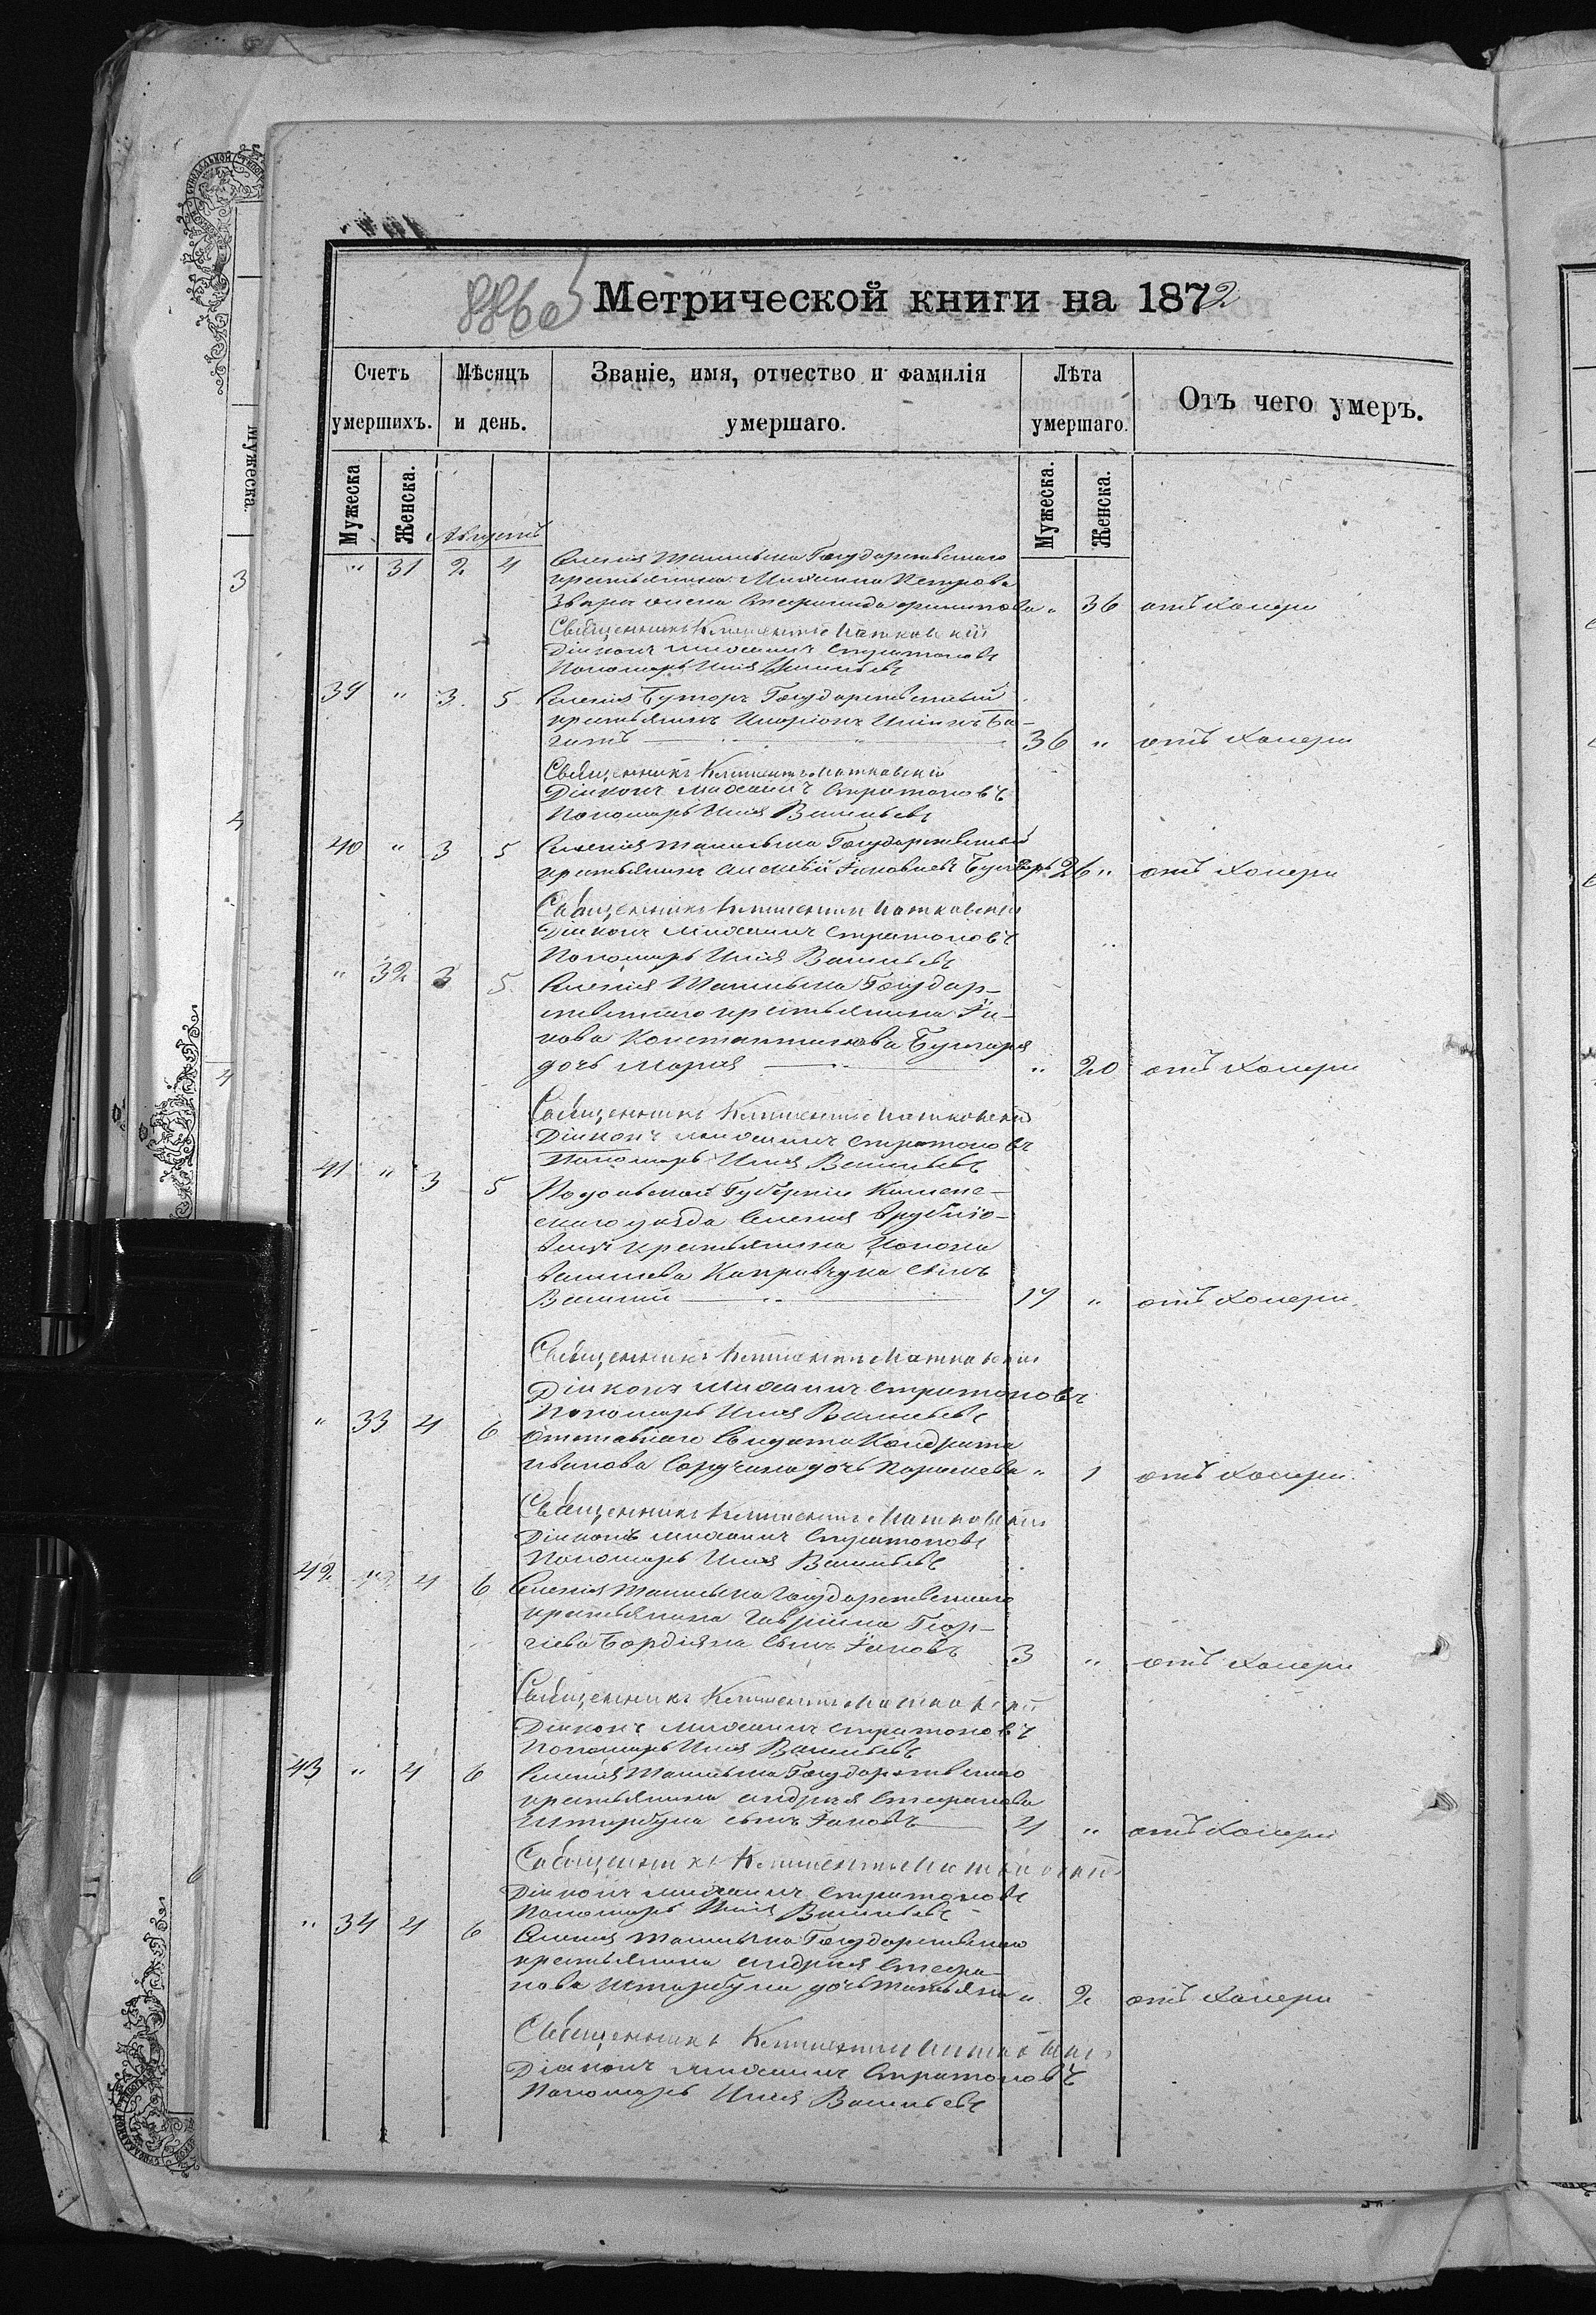 886об
Метрической книги на 1872
Счетъ умершихъ. Мѣсяцъ и день. Званіе, имя, отчество и фамилія умершаго. Лѣта умершаго. Отъ чего умеръ.
Мужеска Женска. Мужеска. Женска.
Августъ
" 31 2 4 Селенія Государственнаго
крестьянина Михаила Петрова
жена Стефанида " 36 отъ холери
Священникъ Климентъ Матковскій
Діаконъ Михаилъ Стратоновъ
Пономарь Илія Васильевъ
39 " 3 5 Селенія Буторъ Государственный
крестьянинъ Иларіонъ Ба-
36 " отъ холери
Священникъ Климентъ Матковскій
Діаконъ Михаилъ Стратоновъ
Пономарь Илія Васильевъ
40 " 3 5 Селенія Государственный
крестьянинъ Алексій Іаковлевъ 26 " отъ холери
Священникъ Климентъ Матковскій
Діаконъ Михаилъ Стратоновъ
Пономарь Илія Васильевъ
" 32 3 5 Селенія Государ-
ственнаго крестьянина Іа-
кова Константинова
дочь Марія " 20 отъ холери
Священникъ Климентъ Матковскій
Діаконъ Михаилъ Стратоновъ
Пономарь Илія Васильевъ
41 " 3 5 Подольской Губерніи Камене-
скаго уѣзда Селенія Врублю-
крестьянина Конона
Капровчука сынъ
Василій 17 " отъ холери
Священникъ Климентъ Матковскій
Діаконъ Михаилъ Стратоновъ
Пономарь Илія Васильевъ
" 33 4 6 Отставнаго Солдата Кондрата
Иванова дочь Параскева " 1 отъ холери
Священникъ Климентъ Матковскій
Діаконъ Михаилъ Стратоновъ
Пономарь Илія Васильевъ
42 " 4 6 Селенія Государственнаго
крестьянина Гавріила Геор-
гіева Бордіяна сынъ Іаковъ 3 " отъ холери
Священникъ Климентъ Матковскій
Діаконъ Михаилъ Стратоновъ
Пономарь Илія Васильевъ
43 " 4 6 Селенія Государственнаго
крестьянина Андрея Стефанова
Штирбула сынъ Іаковъ 4 " отъ холери
Священникъ Климентъ Матковскій
Діаконъ Михаилъ Стратоновъ
Пономарь Илія Васильевъ
" 34 4 6 Селенія Государственнаго
крестьянина Андрея Стефа-
нова Штирбула дочь Татьяна " 2 отъ холери
Священникъ Климентъ Матковскій
Діаконъ Михаилъ Стратоновъ
Пономарь Илія Васильевъ